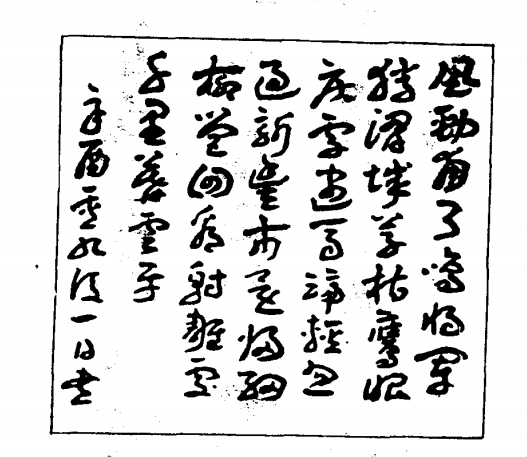 風勁角弓鳴將軍
獵渭城草枯鷹眼
疾雪盡馬蹄輕忽
過新豐市還歸細
柳營回看射雕處
千里暮雲平
辛酉重九後一日書